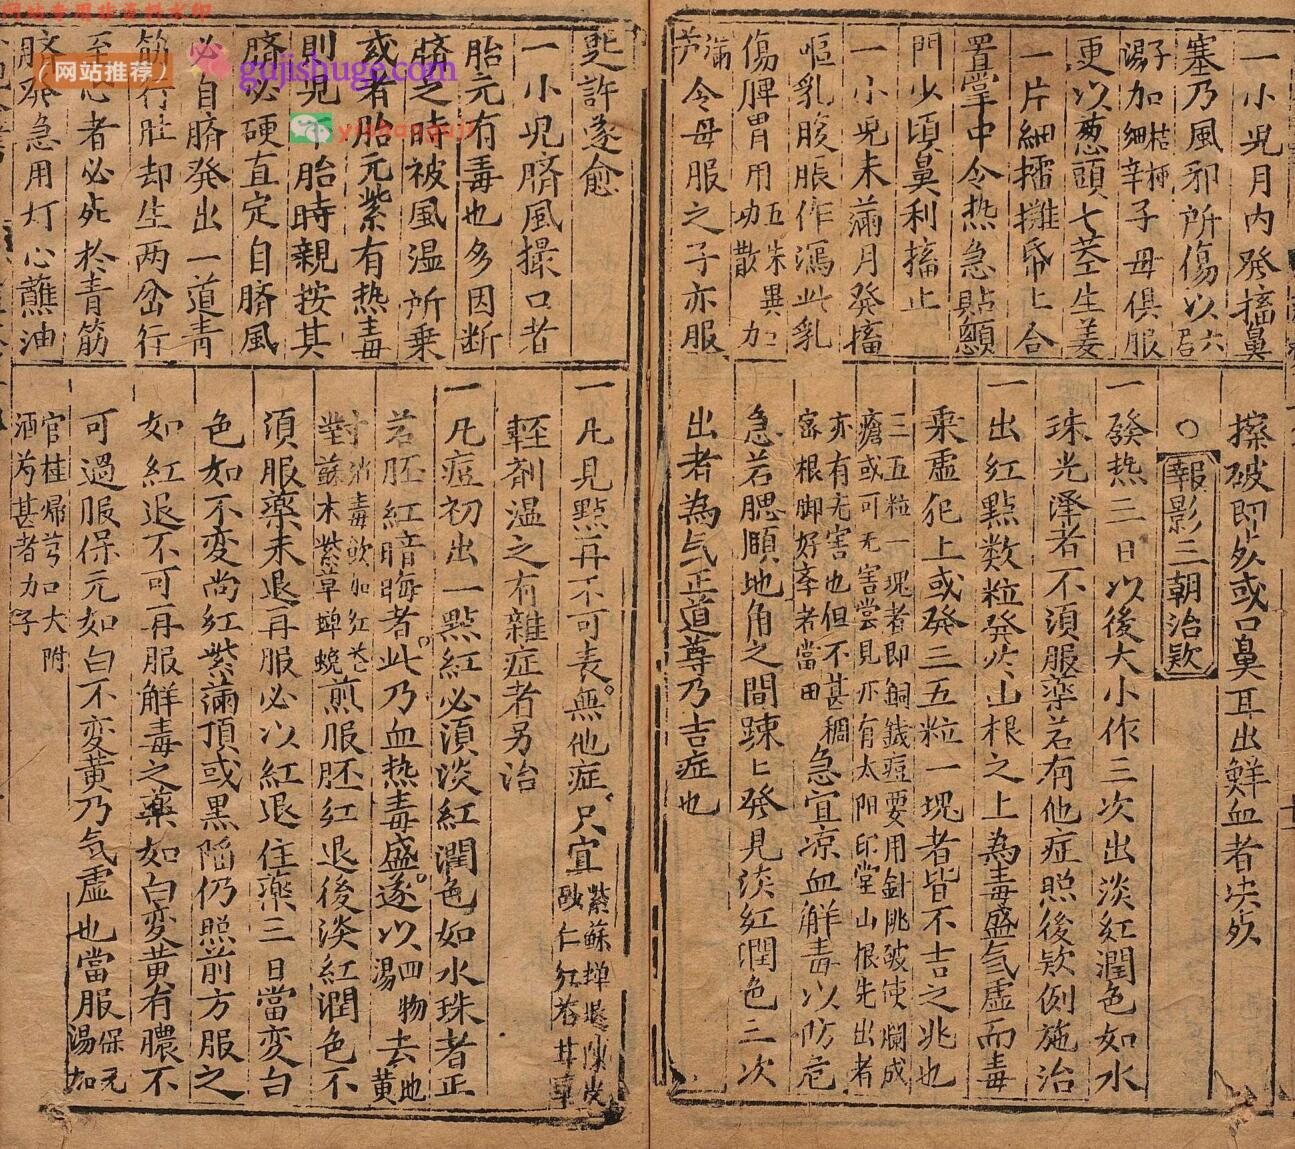 一小児月内発搐鼻
塞乃風邪所傷以六君
子加桔梗湯加細辛子母俱服
更以葱頭七茎生姜
一片細擂攤帋上合
置掌中令热急貼顖
門少頃鼻利搐止
一小児未滿月発搐
嘔乳腹脹作瀉此乳
傷脾胃用五味異功散加
滿芦令母服之子亦服
更許遂愈
一小児臍風撮口者
胎元有毒也多因断
臍之時被風温所乗
或者胎元紫有热毒
則児下胎時親按其
臍必硬直定自臍風
必自臍発出一道青
筋行肚却生两岔行
至心者必死於青筋
初発急用灯心蘸油
擦破即死或口鼻耳出鮮血者决死
○報影三朝治欵
一發热三日以後大小作三次出淡红潤色如水
珠光澤者不須服薬若有他症照後欵例施治
一出红點数粒発於山根之上為毒盛氣虛而毒
乗虛犯上或発三五粒一塊者皆不吉之兆也
三五粒一塊者即銅錢痘要用針眺破使爛成
瘡或可无害嘗見亦有太阳印堂山根先出者
亦有无害也但不甚稠
密根脚好幸者當田
急宜凉血解毒以防危
急若腮頤地角之間踈々発見淡紅潤色三次
出者為气正道尊乃吉症也
一凡見點再不可表無他症只宜紫蘇蝉退陳皮
砂仁红花甘草
輕剤温之有雜症者另治
一凡痘初出一點紅必須淡紅潤色如水珠者正
若胚紅暗晦者此乃血热毒盛遂以四物湯去地黄
對消毒飲加红花
蘇木紫草蝉蛻煎服胚红退後淡紅潤色不
須服藥未退再服必以紅退住薬三日當変白
色如不変尚红紫滿頂或黒陥仍照前方服之
如紅退不可再服解毒之藥如白変黄有膿不
可過服保元如白不変黄乃氣虛也當服保元湯加
官桂歸芎加大附
酒芍甚者加子
网站专用非资料水印
（网站推荐）
gujishuge.com
yishanguji